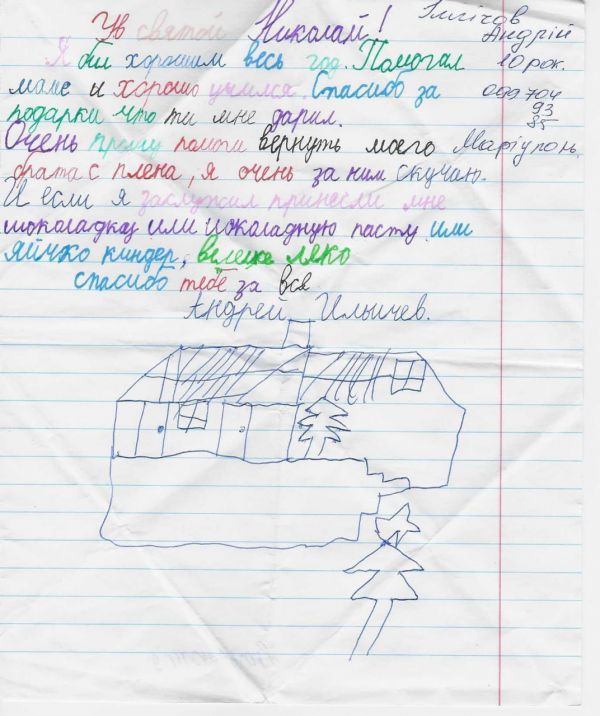 святой Николай!
Я был хорошим весь год. Помогал
маме и хорошо учился. Спасибо за
подарки что ти мне дарил.
Очень прошу помоги вернуть моего
брата с плена, я очень за ним скучаю.
И если я заслужил принеси мне
шоколадку или шоколадную пасту или
яйчко киндер,
спасибо тебе за все
Андрей Ильичев.
Іллічов
Андрій
10 рок.
099 704
93
85
Маріуполь.